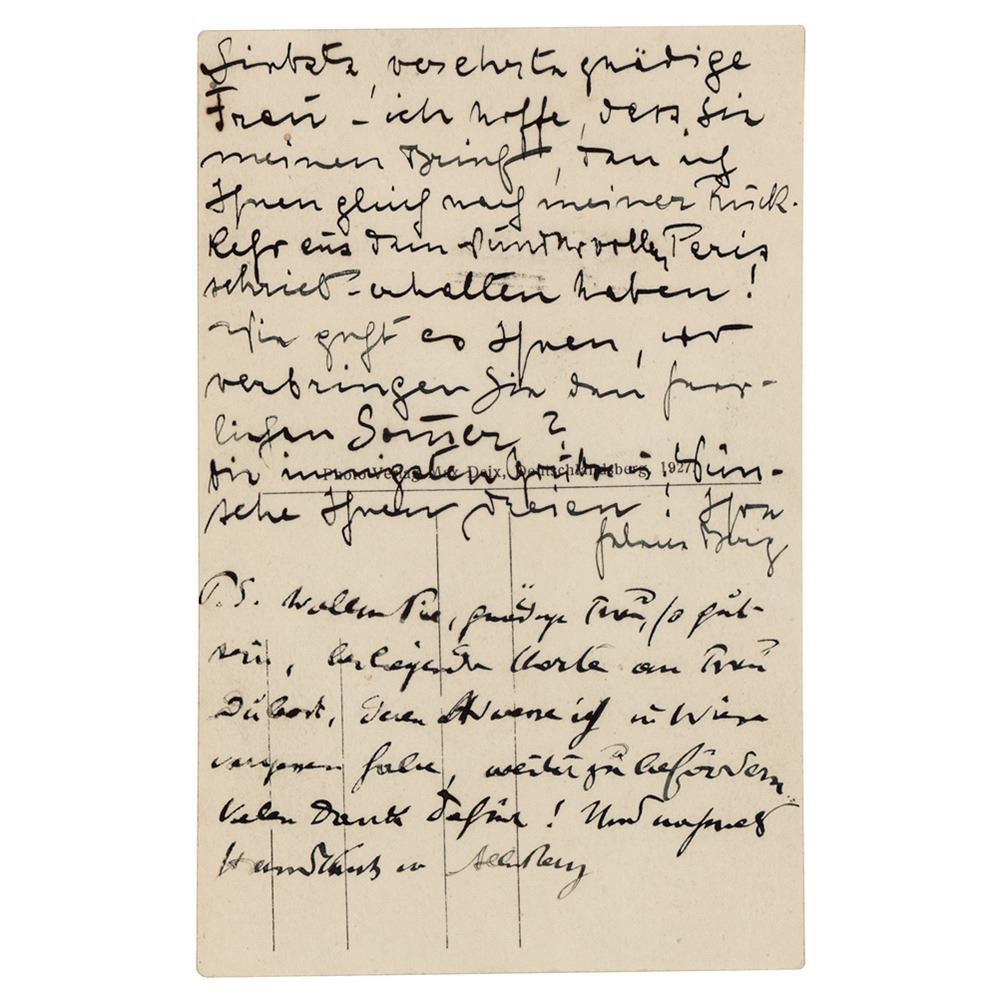 Liebste, verehrte gnädige
Frau – ich hoffe, dass Sie
meinen Brief, den ich
Ihnen gleich nach meiner Rück-
kehr aus dem wundervollen Paris
schrieb – erhalten haben!
Wie geht es Ihnen, wo
verbringen Sie den herr-
lichen Sommer?
Photo-Verlag Max Deix, Deutschlandsberg, 1927
die innigsten Grüße, Wün-
sche Ihnen Dreien! Ihre
Helene Berg
P.S. Wollen Sie, gnädige Frau, so gut
sein, beiliegende Karte an Frau
Dubost, deren Adresse ich in Wien
vergessen habe, weiter zu befördern.
Vielen Dank dafür! Und nochmals
Handkuß Alban Berg